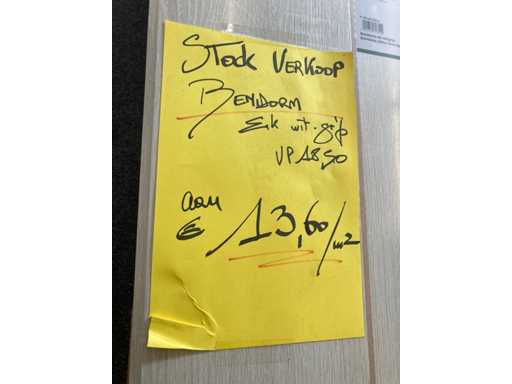 Stock Verkoop
Benidorm
Eik wit-grijs
VP 18,50
aan
€ 13,60/m2